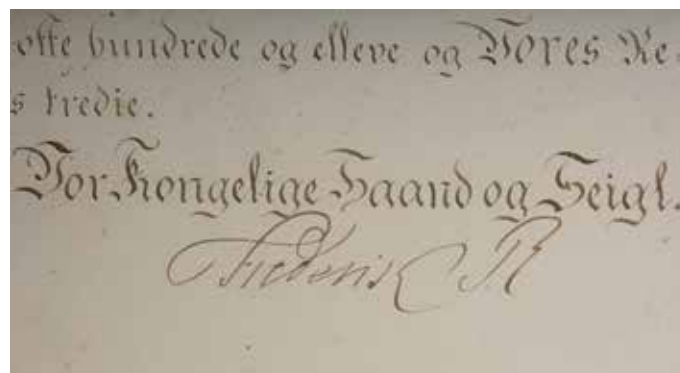 otte hundrede og elleve og Vores Re-
s tredie.
Vor Kongelige Haand og Seigl.
Frederik R